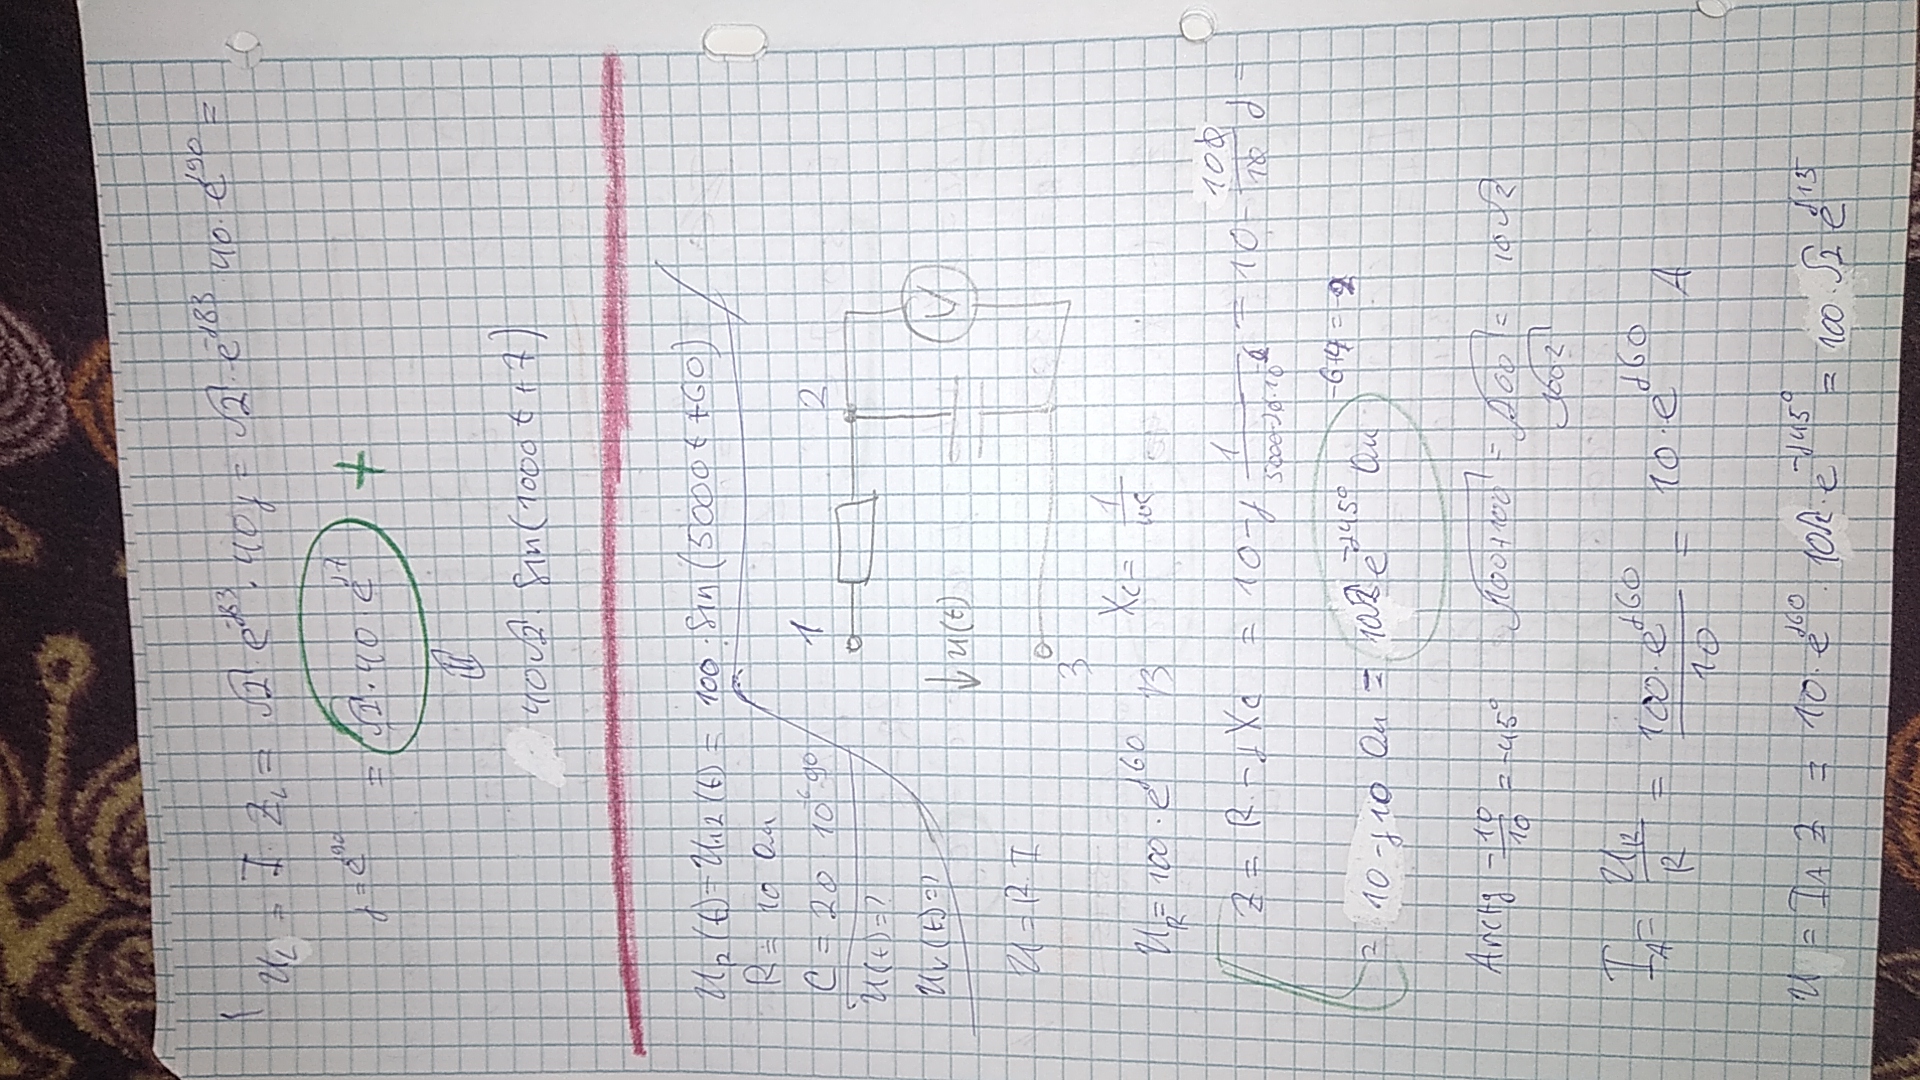 U_L = I · Z_L = √2 · e^-j83 · 40j = √2 · e^-j83 · 40 · e^j90 =
j = e^j90 = √2 · 40 · e^j7 +
⇓
40√2 · sin(1000t + 7)
U_R(t) = U_12(t) = 100 · sin(5000t + 60)
R = 10 Ом
C = 20 10^-6
1 2
U(t) = ?
U_V(t) = ?
V
↓ u(t)
U = R · I
3
X_C = 1/ωC
U_R = 100 · e^j60 В
Z = R - jX_C = 10 - j 1/(5000·20·10^-6) = 10 - 100/10 j =
= 10 - j10 Ом = 10√2 e^-j45° Ом -6+4 = -2
Arctg -10/10 = -45° √100+100 = √200 = 10√2
√100·2
I_A = U_R/R = 100 · e^j60/10 = 10 · e^j60 А
U = I_A Z = 10 · e^j60 · 10√2 · e^-j45° = 100 · √2 e^j15